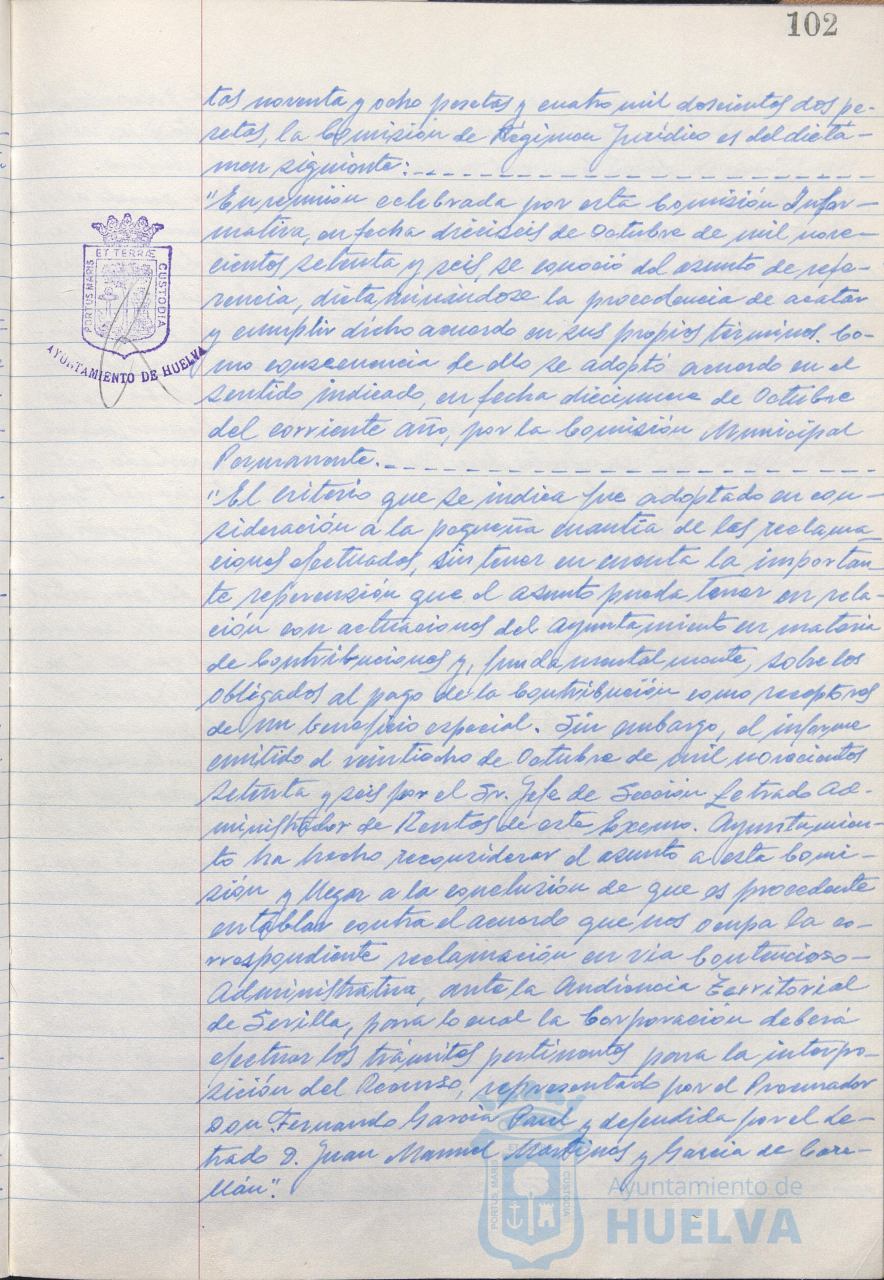 102
tas noventa y ocho pesetas y cuatro mil doscientas dos pe-
setas, la Comisión de Régimen Jurídico es del dictá-
men siguiente:
"En reunión celebrada por esta Comisión Infor-
mativa, en fecha dieciseis de Octubre de mil nove-
cientos setenta y seis, se conoció del asunto de refe-
rencia, dictaminándose la procedencia de acatar
y cumplir dicho acuerdo en sus propios términos. Co-
mo consecuencia de ello se adoptó acuerdo en el
sentido indicado, en fecha diecinueve de Octubre
del corriente año, por la Comisión Municipal
Permanente.
"El criterio que se indica fue adoptado en con-
sideración a la pequeña cuantía de las reclama-
ciones efectuadas, sin tener en cuenta la importan-
te repercusión que el asunto pueda tener en rela-
ción con actuaciones del Ayuntamiento en materia
de Contribuciones y, fundamentalmente, sobre los
obligados al pago de la Contribución como receptores
de un beneficio especial. Sin embargo, el informe
emitido el veintiocho de Octubre de mil novecientos
setenta y seis por el Sr. Jefe de Sección Letrado Ad-
ministrador de Rentas de este Excmo. Ayuntamien-
to ha hecho reconsiderar el asunto a esta Comi-
sión y llegar a la conclusión de que es procedente
entablar contra el acuerdo que nos ocupa la co-
rrespondiente reclamación en via Contencioso-
Administrativa, ante la Audiencia Territorial
de Sevilla, para lo cual la Corporación deberá
efectuar los trámites pertinentes para la interpo-
sición del Recurso, representado por el Procurador
Don Fernando García Paul y defendida por el Le-
trado D. Juan Manuel Martínez y García de
llán".
PORTUS MARIS
ET TERRÆ
CUSTODIA
AYUNTAMIENTO DE HUELVA
PORTUS MARIS
CUSTODIA
Ayuntamiento de
HUELVA